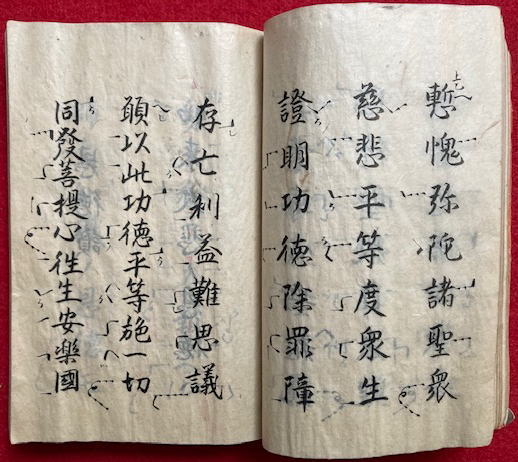 慙愧弥陀諸聖衆
慈悲平等度衆生
證明功徳除罪障
存亡利益難思議
願以此功徳平等施一切
同發菩提心往生安樂國